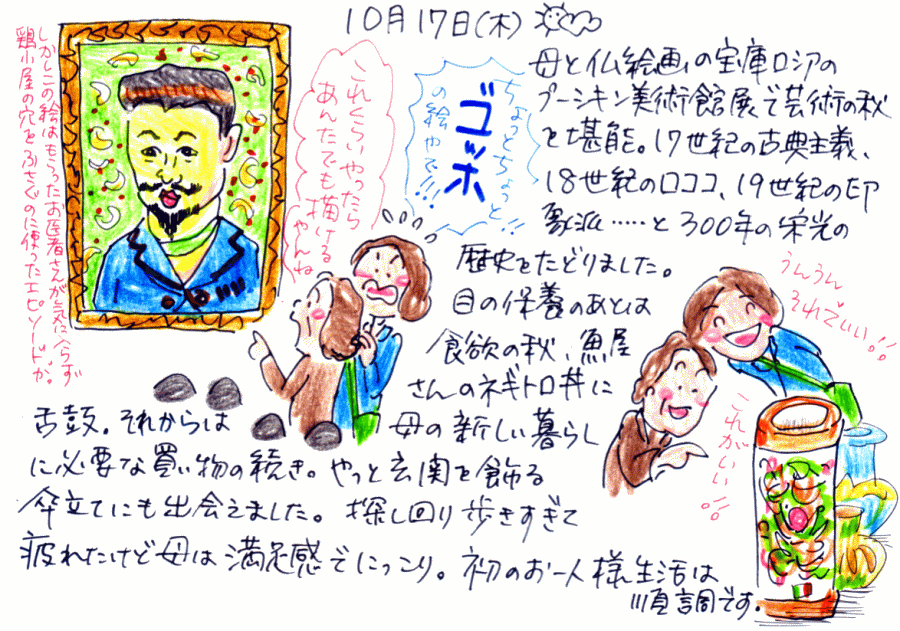 10月17日(木)
母と仏絵画の宝庫ロシアの
プーシキン美術館展で芸術の秋
を堪能。17世紀の古典主義、
18世紀のロココ、19世紀の印
象派……と300年の栄光の
歴史をたどりました。
目の保養のあとは
食欲の秋、魚屋
さんのネギトロ丼に
舌鼓。それからは
母の新しい暮らし
に必要な買い物の続き。やっと玄関を飾る
傘立てにも出会えました。探し回り歩きすぎて
疲れたけど母は満足感でにっこり。初のお一人様生活は
順調です。
しかしこの絵はもらったお医者さんが気に入らず
鶏小屋の穴をふさぐのに使ったエピソードが。
これくらいやったら
あんたでも描ける
やんね
ちょっとちょっと
ゴッホ
の絵やで!!
うんうん
それでいい!!
これがいい!!